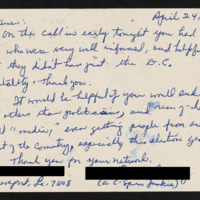 April 24,
On the call in early tonight you had
who were very well informed, and helpful
they didn't have just the D.C.
mentality. Thank you.
It would be helpful if you would
other than politicians, and run-of-
"media", even getting people from
of the Country, especially the election
Thank you for your network.
(a C-Span Junkie)
La. 71108